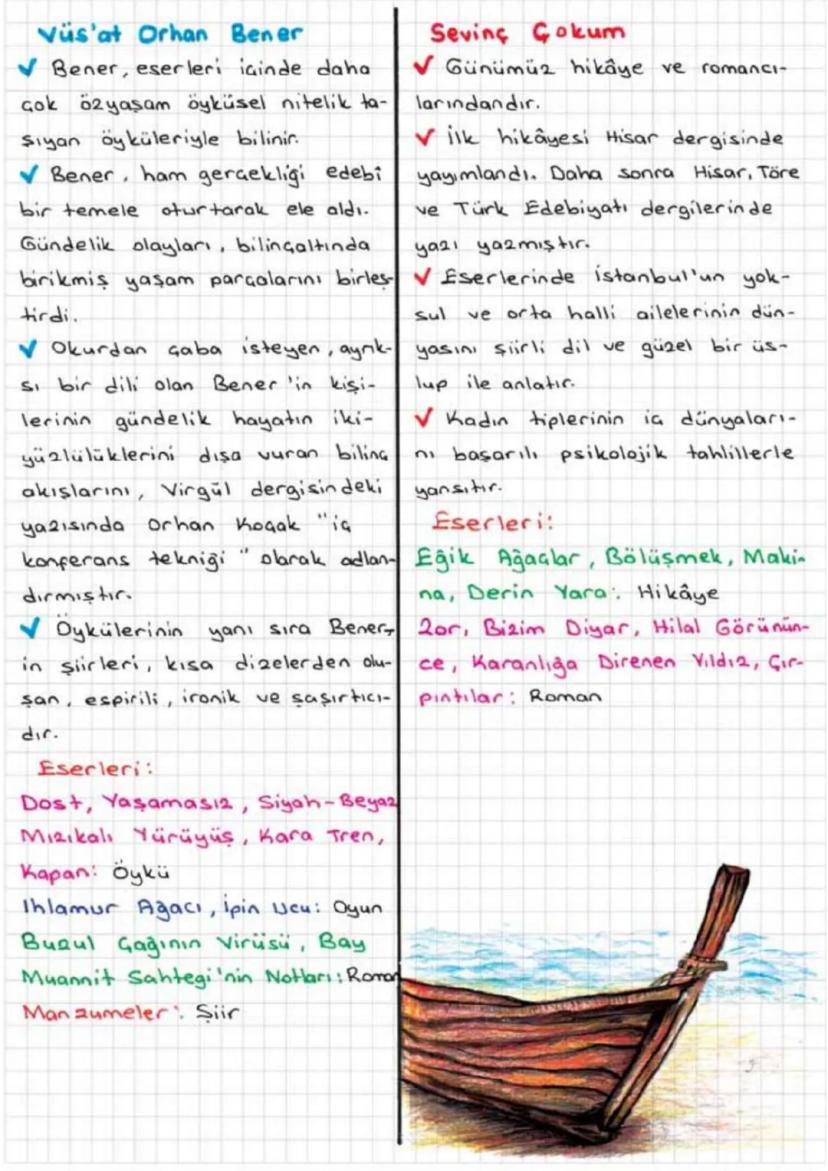 Vüs'at Orhan Bener
✓ Bener, eserleri içinde daha
çok özyaşam öyküsel nitelik ta-
şıyan öyküleriyle bilinir.
✓ Bener, ham gerçekliği edebî
bir temele oturtarak ele aldı.
Gündelik olayları, bilinçaltında
birikmiş yaşam parçalarını birleş-
tirdi.
✓ Okurdan çaba isteyen, ayrık-
sı bir dili olan Bener'in kişi-
lerinin gündelik hayatın iki-
yüzlülüklerini dışa vuran bilinç
akışlarını, Virgül dergisindeki
yazısında Orhan Koçak "iç
konferans tekniği" olarak adlan-
dırmıştır.
✓ Öykülerinin yanı sıra Bener'-
in şiirleri, kısa dizelerden olu-
şan, espirili, ironik ve şaşırtıcı-
dır.
Eserleri:
Dost, Yaşamasız, Siyah-Beyaz
Mızıkalı Yürüyüş, Kara Tren,
Kapan: Öykü
Ihlamur Ağacı, İpin Ucu: Oyun
Buzul Çağının Virüsü, Bay
Muannit Sahtegi'nin Notları: Roman
Manzumeler: Şiir
Sevinç Çokum
✓ Günümüz hikâye ve romancı-
larındandır.
✓ İlk hikâyesi Hisar dergisinde
yayımlandı. Daha sonra Hisar, Töre
ve Türk Edebiyatı dergilerinde
yazı yazmıştır.
✓ Eserlerinde İstanbul'un yok-
sul ve orta halli ailelerinin dün-
yasını şiirli dil ve güzel bir üs-
lup ile anlatır.
✓ Kadın tiplerinin iç dünyaları-
nı başarılı psikolojik tahlillerle
yansıtır.
Eserleri:
Eğik Ağaçlar, Bölüşmek, Maki-
na, Derin Yara: Hikâye
Zor, Bizim Diyar, Hilal Görünün-
ce, Karanlığa Direnen Yıldız, Çır-
pıntılar: Roman